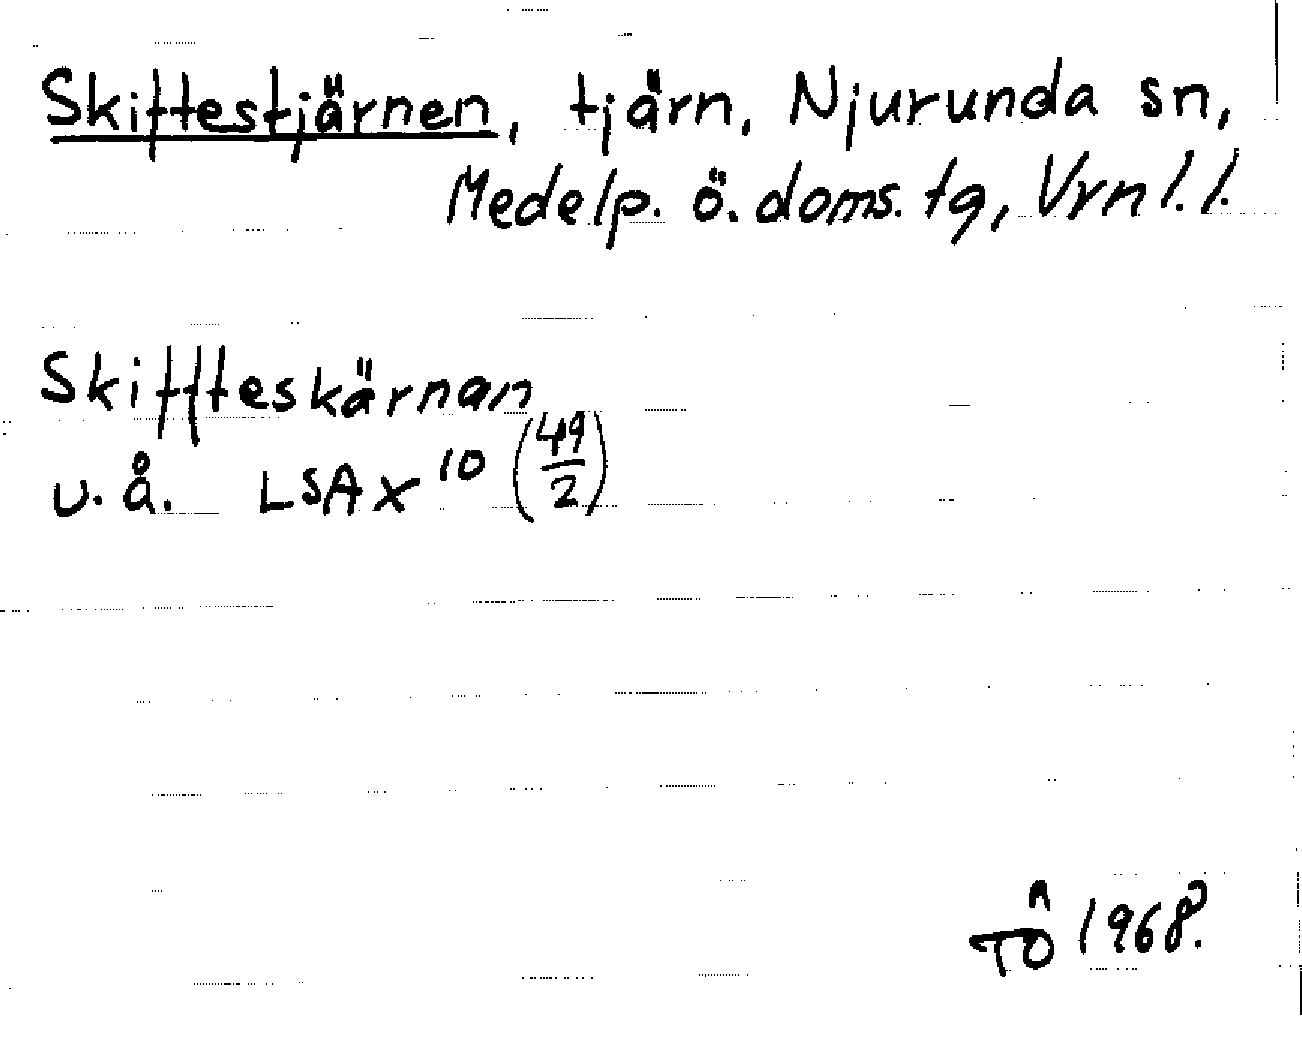 Skiftestjärnen, tjärn, Njurunda sn,
Medelp. ö. doms. tg, Vrnl. l.
Skiffteskärnan
u. å. LSA x 10 (49/2)
TÖ 1968.